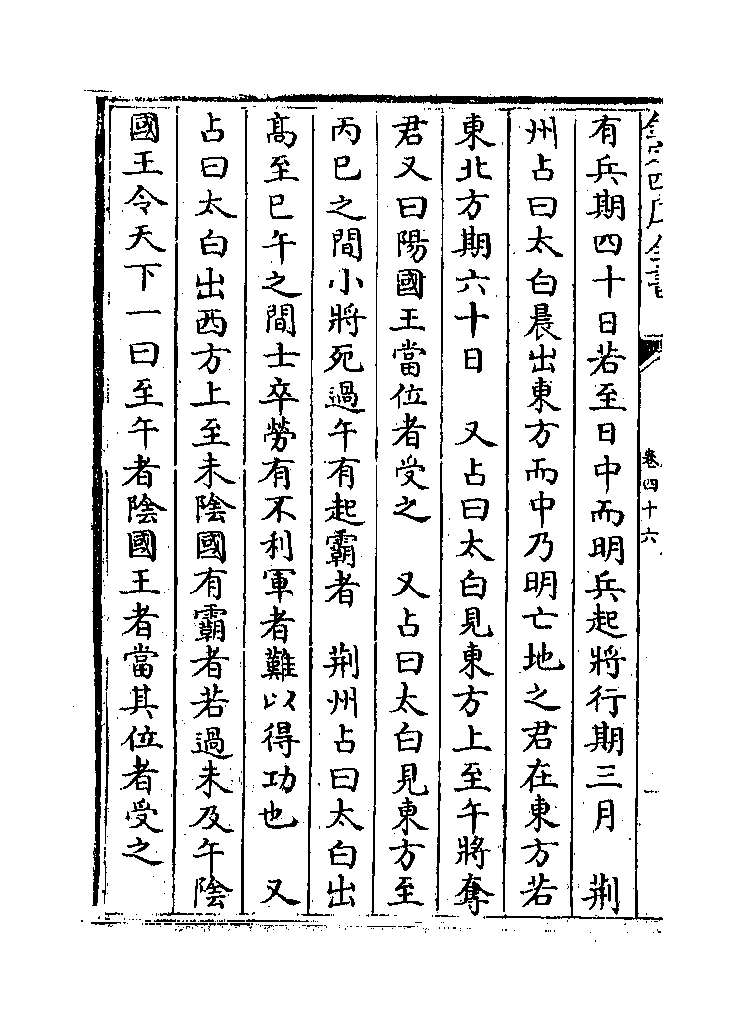 欽定四庫全書
卷四十六
有兵期四十日若至日中而明兵起將行期三月　荆
州占曰太白晨出東方而中乃明亡地之君在東方若
東北方期六十日　又占曰太白見東方上至午將奪
君又曰陽國王當位者受之　又占曰太白見東方至
丙巳之間小將死過午有起霸者　荆州占曰太白出
髙至巳午之間士卒勞有不利軍者難以得功也　又
占曰太白出西方上至未陰國有霸者若過未及午陰
國王令天下一曰至午者陰國王者當其位者受之